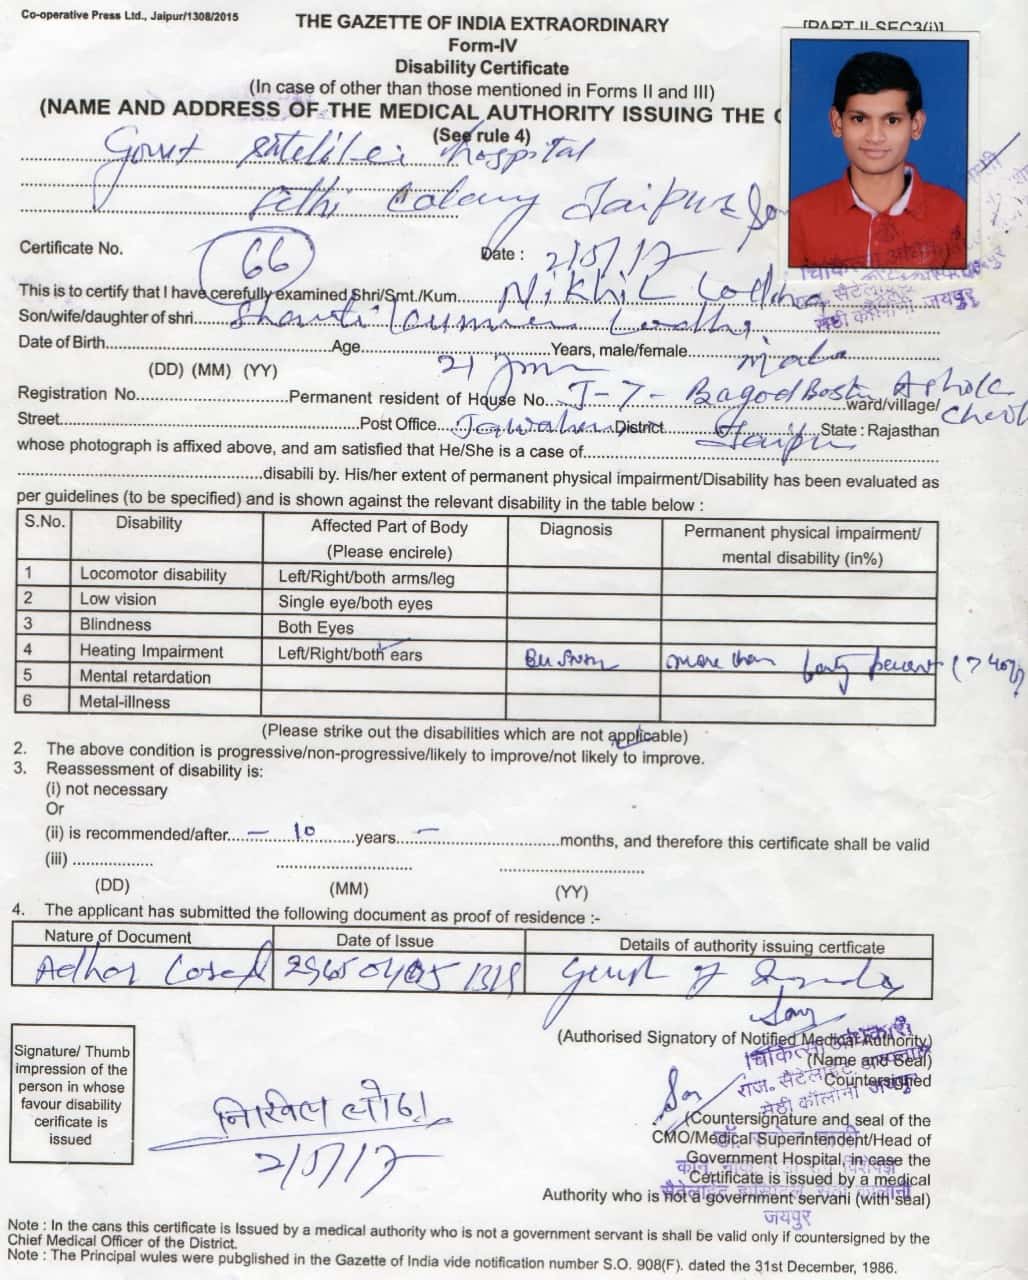 Co-operative Press Ltd., Jaipur/1308/2015
THE GAZETTE OF INDIA EXTRAORDINARY
[PART II-SEC3(i)]
Form-IV
Disability Certificate
(In case of other than those mentioned in Forms II and III)
(NAME AND ADDRESS OF THE MEDICAL AUTHORITY ISSUING THE
(See rule 4)
Govt hospital
Sethi Colony Jaipur
Certificate No. 66 Date : 2/5/17
This is to certify that I have cerefully examined Shri/Smt./Kum. Nikhil Lodha
Son/wife/daughter of shri
Date of Birth Age 21 Years, male/female male
(DD) (MM) (YY)
Registration No. Permanent resident of House No. J-7- Ashok ward/village/ Chowk
Street Post Office Jawahar District Jaipur State : Rajasthan
whose photograph is affixed above, and am satisfied that He/She is a case of
disabili by. His/her extent of permanent physical impairment/Disability has been evaluated as
per guidelines (to be specified) and is shown against the relevant disability in the table below :
S.No. Disability Affected Part of Body (Please encirele) Diagnosis Permanent physical impairment/ mental disability (in%)
1 Locomotor disability Left/Right/both arms/leg
2 Low vision Single eye/both eyes
3 Blindness Both Eyes
4 Heating Impairment Left/Right/both ears more than forty percent (>40%)
5 Mental retardation
6 Metal-illness
(Please strike out the disabilities which are not applicable)
2. The above condition is progressive/non-progressive/likely to improve/not likely to improve.
3. Reassessment of disability is:
(i) not necessary
Or
(ii) is recommended/after - 10 years - months, and therefore this certificate shall be valid
(iii)
(DD) (MM) (YY)
4. The applicant has submitted the following document as proof of residence :-
Nature of Document Date of Issue Details of authority issuing certficate
Adhar Card Govt of India
(Authorised Signatory of Notified Medical Authority)
चिकित्सा अधिकारी
(Name and Seal)
राज. सैटेलाईट अस्पताल
Countersigned
सेठी कॉलोनी जयपुर
Signature/ Thumb
impression of the
person in whose
favour disability
cerificate is
issued
निखिल लोढा
2/5/17
(Countersignature and seal of the
CMO/Medical Superintendent/Head of
Government Hospital, in case the
Certificate is issued by a medical
Authority who is not a government servani (with seal)
जयपुर
Note : In the cans this certificate is Issued by a medical authority who is not a government servant is shall be valid only if countersigned by the
Chief Medical Officer of the District.
Note : The Principal wules were pubglished in the Gazette of India vide notification number S.O. 908(F). dated the 31st December, 1986.